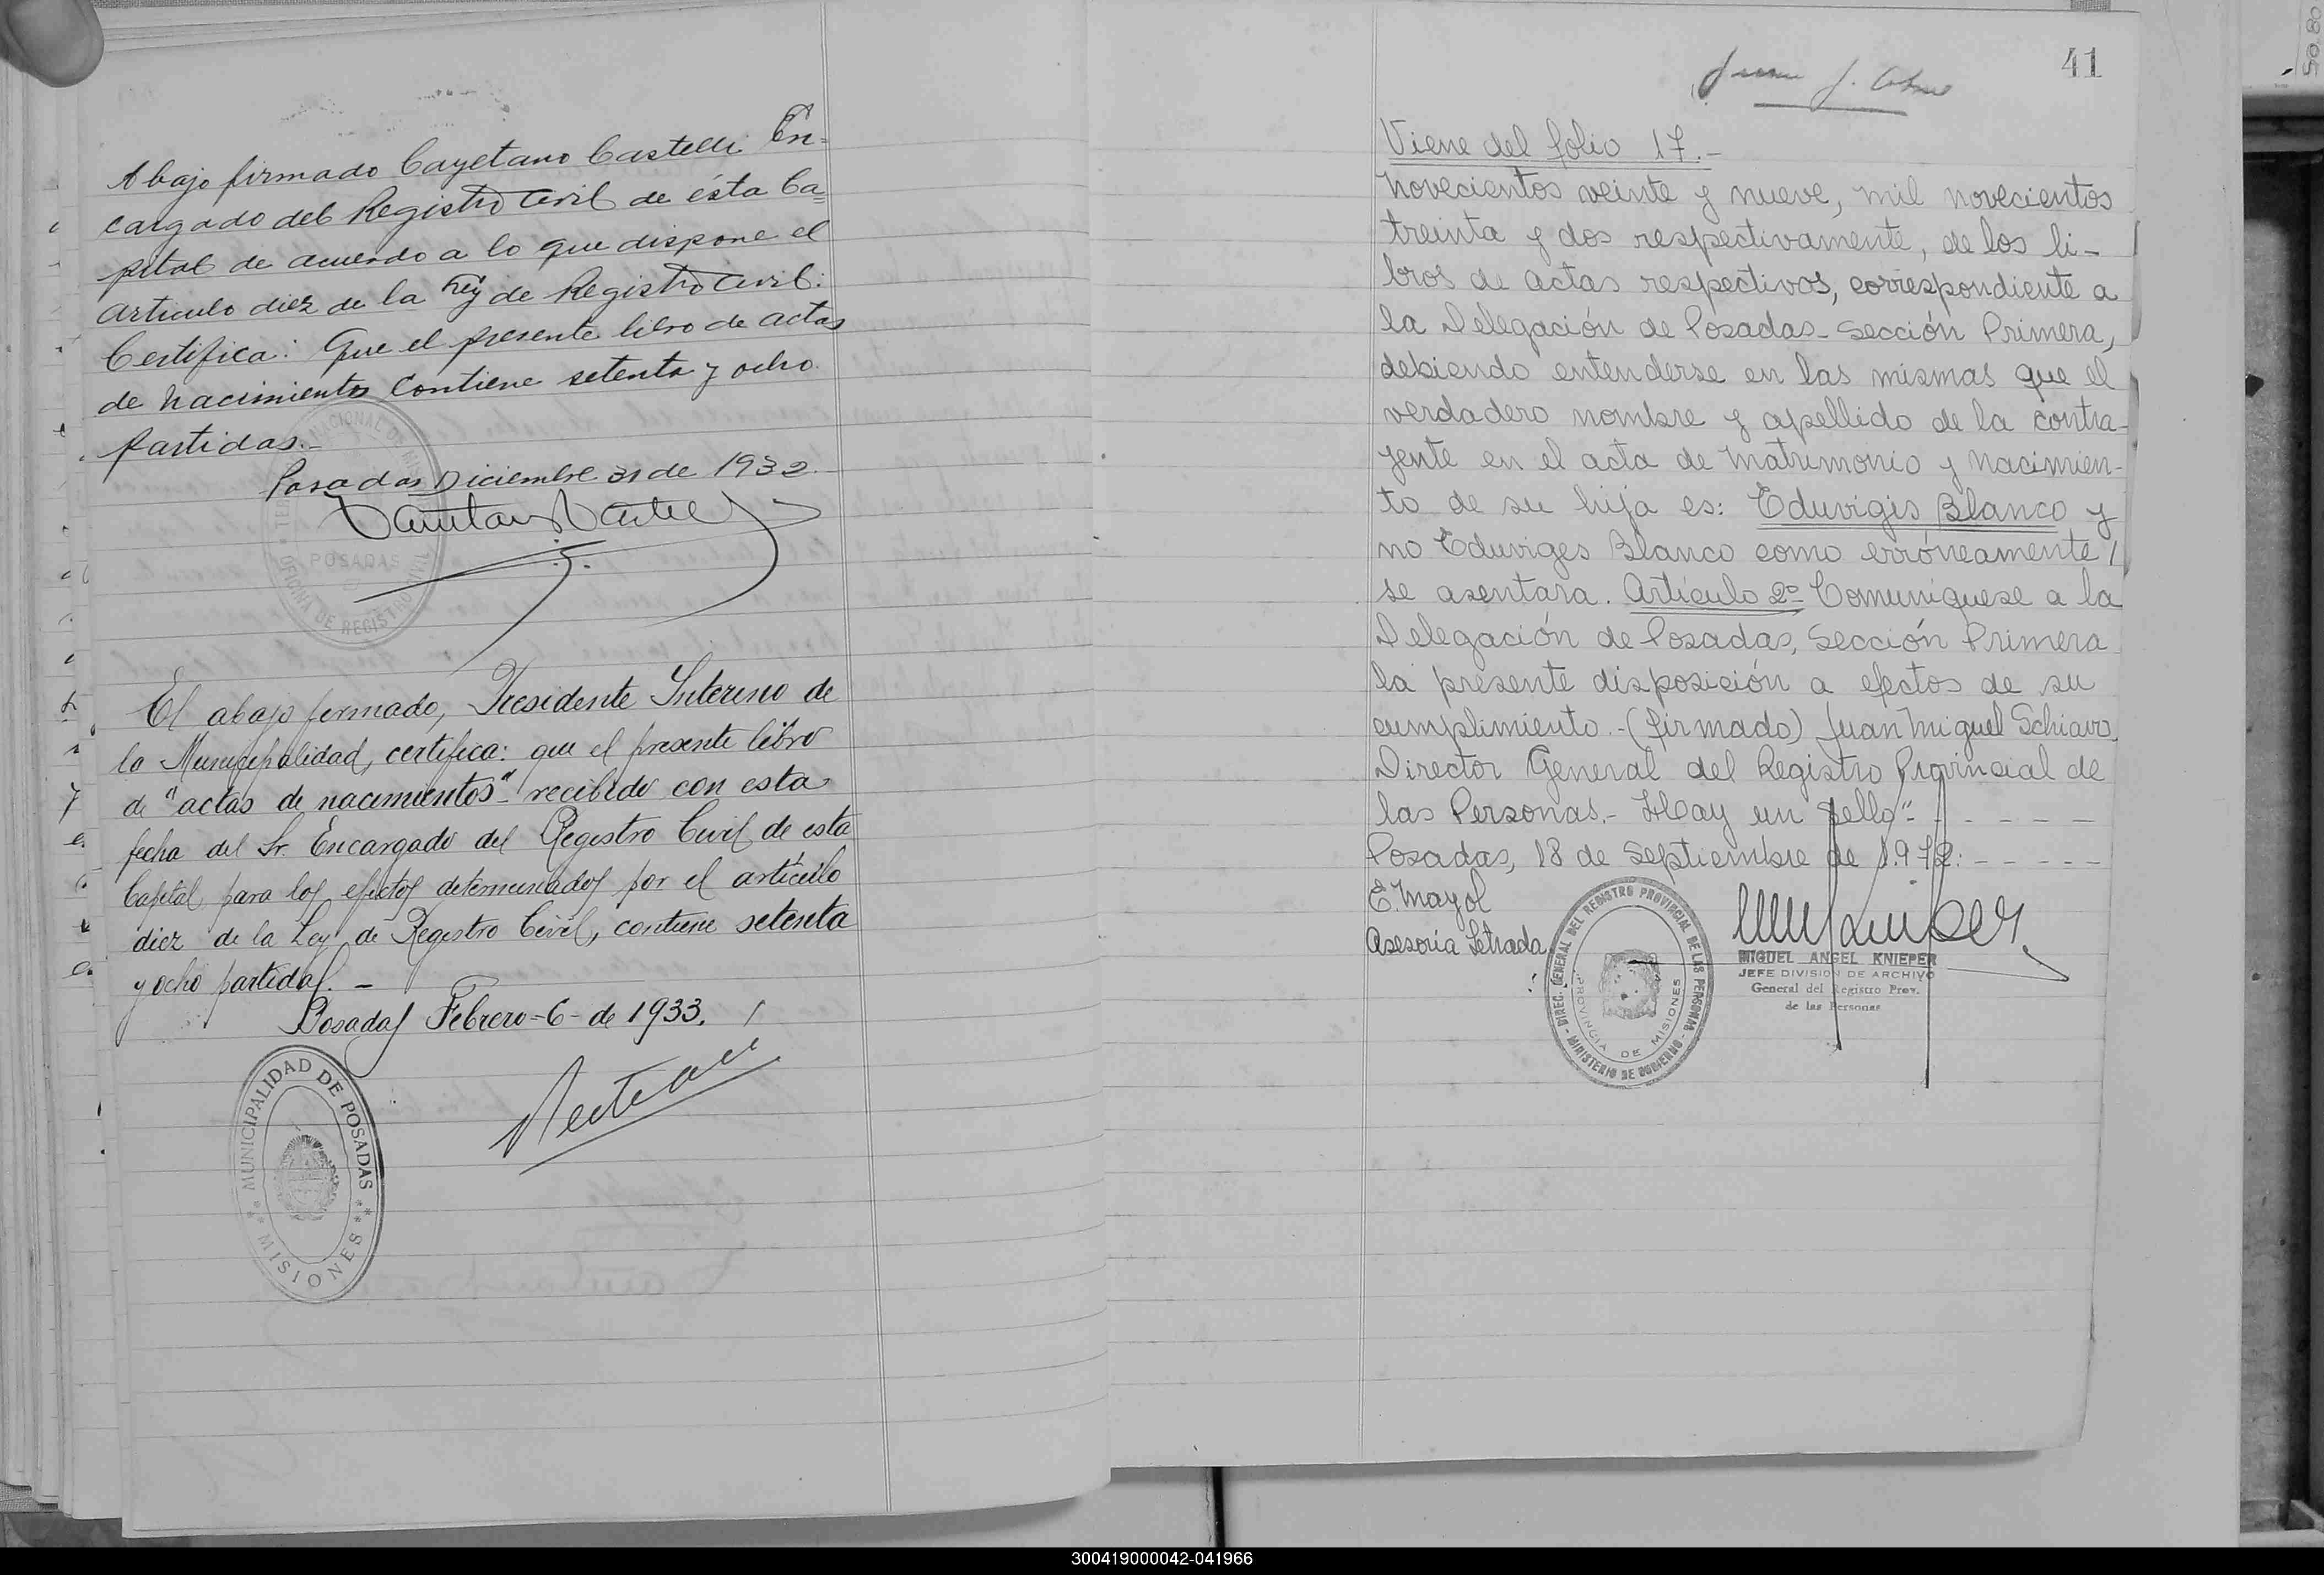 Abajo firmado Cayetano Castelli En-
cargado del Registro Civil de ésta Ca=
pital de acuerdo a lo que dispone el
artículo diez de la Ley de Registro Civil:
Certifica: Que el presente libro de actas
de Nacimientos Contiene setenta y ocho
partidas.-
Posadas Diciembre 31 de 1932.
POSADAS
OFICINA DE REGISTRO CIVIL
El abajo firmado, Presidente Interino de
la Municipalidad, certifica: que el presente libro
de "actas de nacimientos" recibido con esta
fecha del Sr. Encargado del Registro Civil de esta
Capital para los efectos determinados por el artículo
diez de la Ley de Registro Civil, contiene setenta
y ocho partidas. -
Posadas Febrero-6- de 1933.
MUNICIPALIDAD DE POSADAS
MISIONES
41
Viene del folio 17.-
novecientos veinte y nueve, mil novecientos
treinta y dos respectivamente, de los li-
bros de actas respectivos, correspondiente a
la Delegación de Posadas- Sección Primera,
debiendo entenderse en las mismas que el
verdadero nombre y apellido de la contra-
yente en el acta de matrimonio y nacimien-
to de su hija es: Eduvigis Blanco y
no Eduviges Blanco como erróneamente /
se asentara. Artículo 2º Comuníquese a la
Delegación de Posadas, Sección Primera
la presente disposición a efectos de su
cumplimiento.-(firmado) Juan Miguel Schiavo,
Director General del Registro Provincial de
las Personas.- Hay un sello"- - - - - -
Posadas, 18 de Septiembre de 1972:- - - - -
E. Mayol
Asesoría Letrada
DIREC. GENERAL DEL REGISTRO PROVINCIAL DE LAS PERSONAS
MINISTERIO DE GOBIERNO
PROVINCIA DE MISIONES
MIGUEL ANGEL KNIEPER
JEFE DIVISION DE ARCHIVO
General del Registro Prov.
de las Personas
300419000042-041966